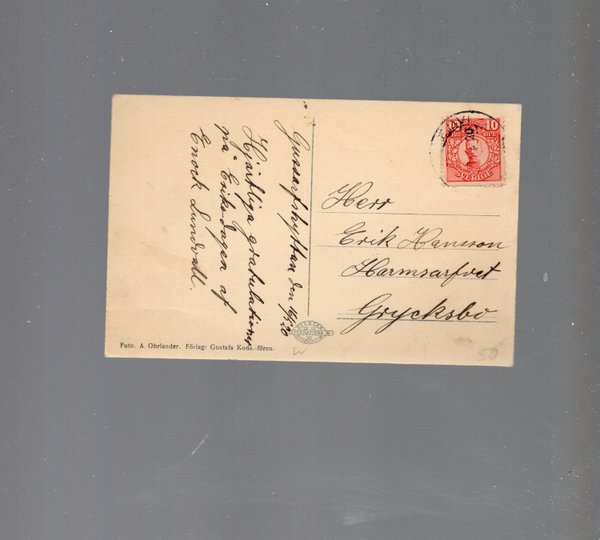 Gussarfshyttan den 16/5 20
Hjärtliga gratulationer
på Eriksdagen af
Enock Lundvall.
Herr
Erik Hansson
Harmsarfvet
Grycksbo
10
SVERIGE
20
Foto. A. Ohrlander. Förlag: Gustafs Kons.-fören.
50